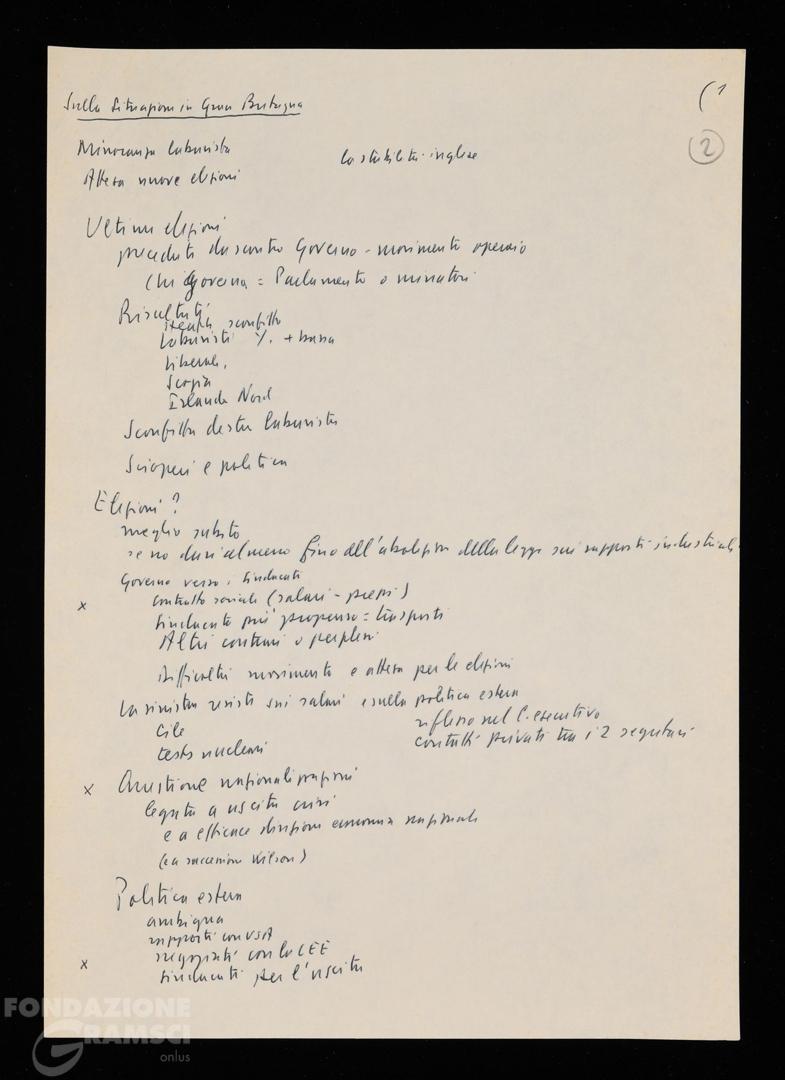 Sulla situazione in Gran Bretagna
(1
2
Minoranza laburista
la stabilità inglese
Attesa nuove elezioni
Ultime elezioni
precedute da scontro Governo - movimento operaio
Chi governa = Parlamento o minatori
Risultati
Heath sconfitto
Laburisti % + bassa
Liberali,
Scozia
Irlanda Nord
Sconfitta destra laburista
Scioperi e politica
Elezioni?
meglio subito
se no duri almeno fino all'abolizione della legge sui rapporti industriali
Governo verso i sindacati
x contratto sociale (salari - prezzi)
sindacato più propenso = trasporti
Altri contrari o perplessi
difficoltà movimento e attesa per le elezioni
La sinistra resiste sui salari e sulla politica estera
Cile
riflesso nel C. esecutivo
tests nucleari
contatti privati tra i 2 segretari
x Questione nazionalizzazioni
legata a uscita crisi
e a efficace direzione economia nazionale
(e a successione Wilson)
Politica estera
ambigua
rapporti con USA
negoziati con la CEE
x sindacati per l'uscita
FONDAZIONE
GRAMSCI
onlus